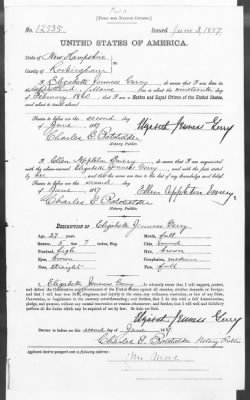 Paid
[FORM FOR NATIVE CITIZEN.]
No. 12535 Issued June 3, 1887
UNITED STATES OF AMERICA.
State of New Hampshire
County of Rockingham
I, Elizabeth Jenness Gerry, do swear that I was born in
Maine, on or about the nineteenth day
of February 1860; that I am a Native and Loyal Citizen of the United States,
and about to travel abroad
Sworn to before me, this second day
of June 1887
Elizabeth Jenness Gerry
Notary Public.
I, Ellen Appleton, do swear that I am acquainted
with the above-named Elizabeth Jenness Gerry, and with the fact stated
by her, and that the same are true to the best of my knowledge and belief.
Sworn to before me, this second day
of June 1887
Ellen Appleton
Notary Public.
DESCRIPTION OF Elizabeth Jenness Gerry
Age, 27 years. Mouth, full
Stature, 5 feet 7 inches, Eng. Chin, round
Forehead, high Hair, brown
Eyes, brown Complexion, medium
Nose, straight Face, full
I, Elizabeth Jenness Gerry, do solemnly swear that I will support, protect,
and defend the Constitution and Government of the United States against all enemies, whether domestic or foreign;
and that I will bear true faith, allegiance, and loyalty to the same, any ordinance, resolution, or law of any State,
Convention, or Legislature to the contrary notwithstanding; and further, that I do this with a full determination,
pledge, and purpose, without any mental reservation or evasion whatsoever; and further, that I will well and faithfully
perform all the duties which may be required of me by law. So help me God.
Elizabeth Jenness Gerry
Sworn to before me this second day of June, 1887
Notary Public
Applicant desires passport sent to following address: